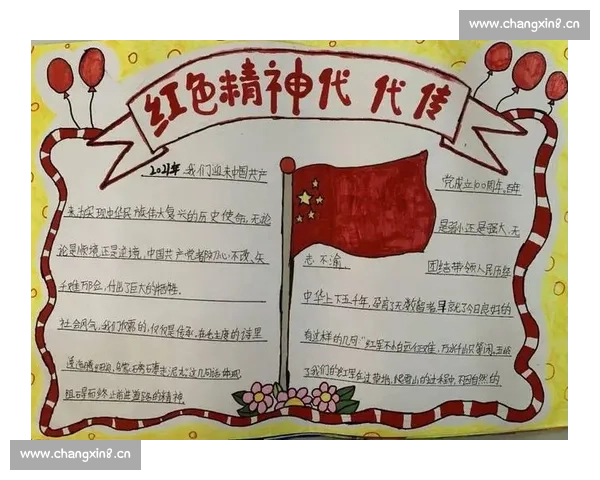 www.changxin8.cn
红色精神代代传
2021年我们迎来中国共产
党成立100周年。百年
来为实现中华民族伟大复兴的历史使命,无论
是弱小还是强大,无
论是顺境还是逆境,中国共产党都初心不改、矢
志不渝
团结带领人民历经
千难万险,付出了巨大的牺牲。
中华上下五千年,孕育了无数智者早就了今日良好的
社会风气,我们欣赏的,仅仅是传承,在毛主席的诗里
有这样的几句“红军不怕远征难,万水千山只等闲,五岭
逶迤腾细浪,乌蒙磅礴走泥丸”这几句话体现
了我们的红军在过草地,爬雪山的过程中,不因自然的
阻碍而终止前进道路的精神
www.changxin8.cn